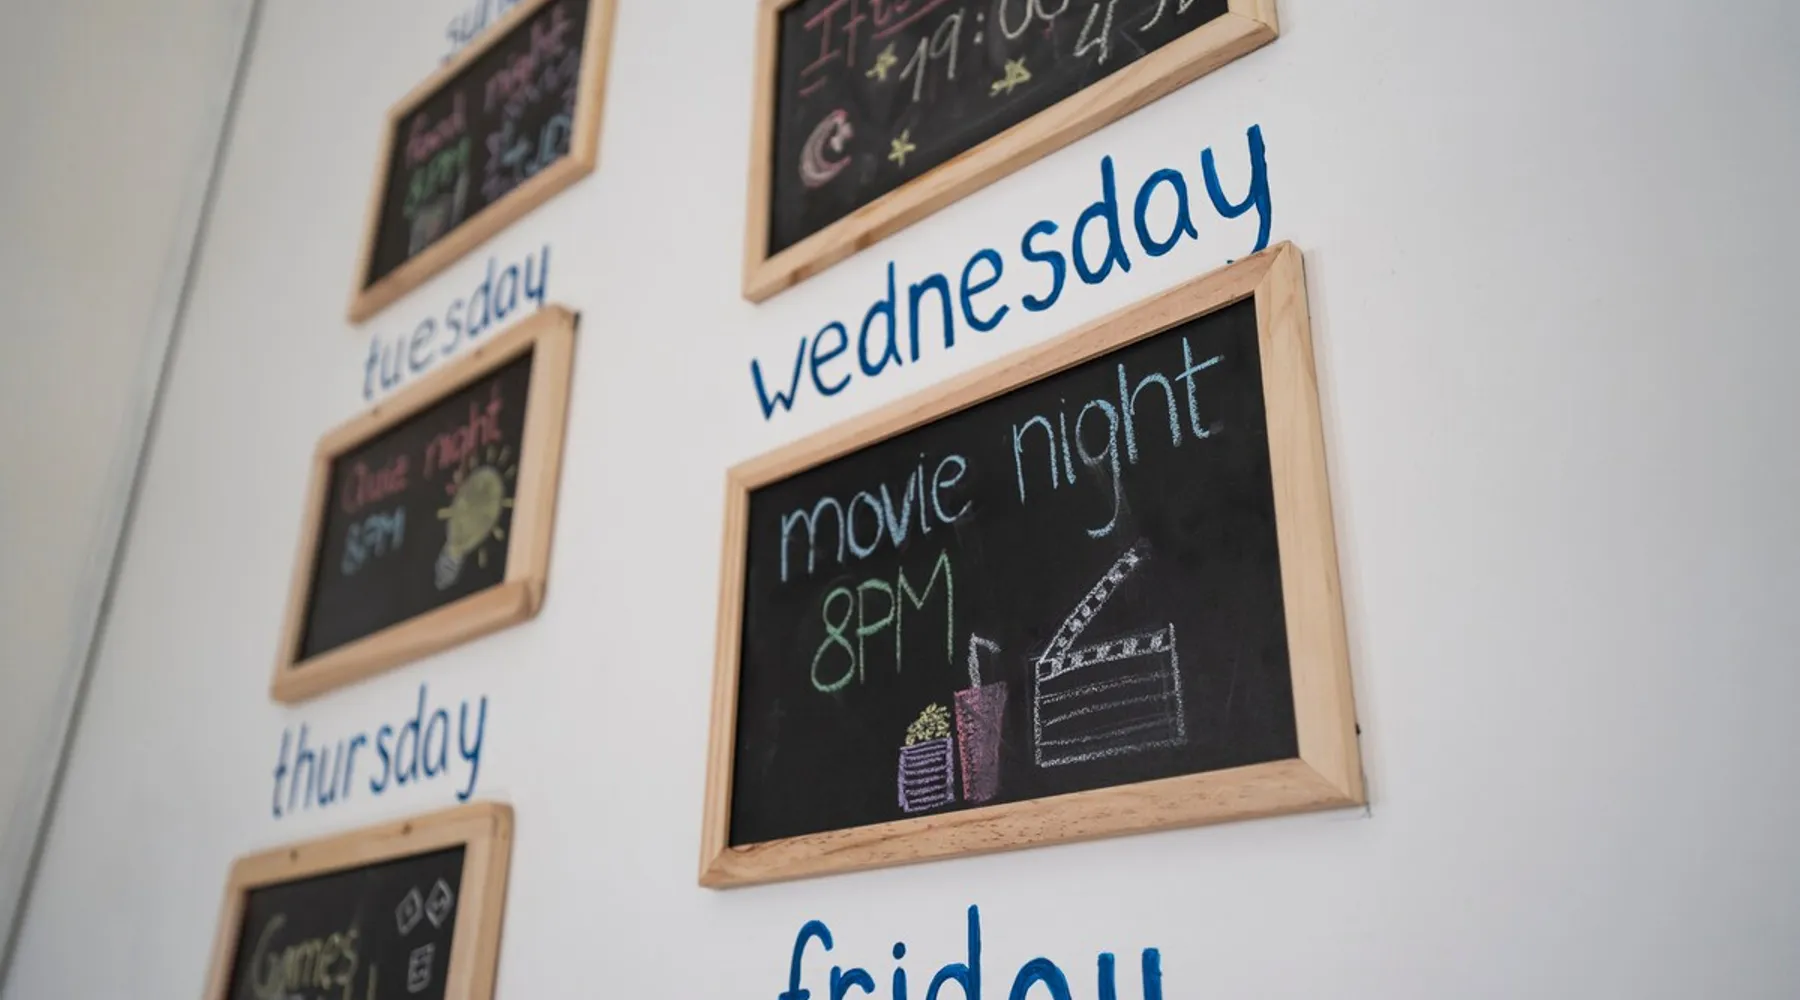 food night
8PM
19:00
tuesday
Quiz night
8PM
wednesday
movie night
8PM
thursday
Games
friday